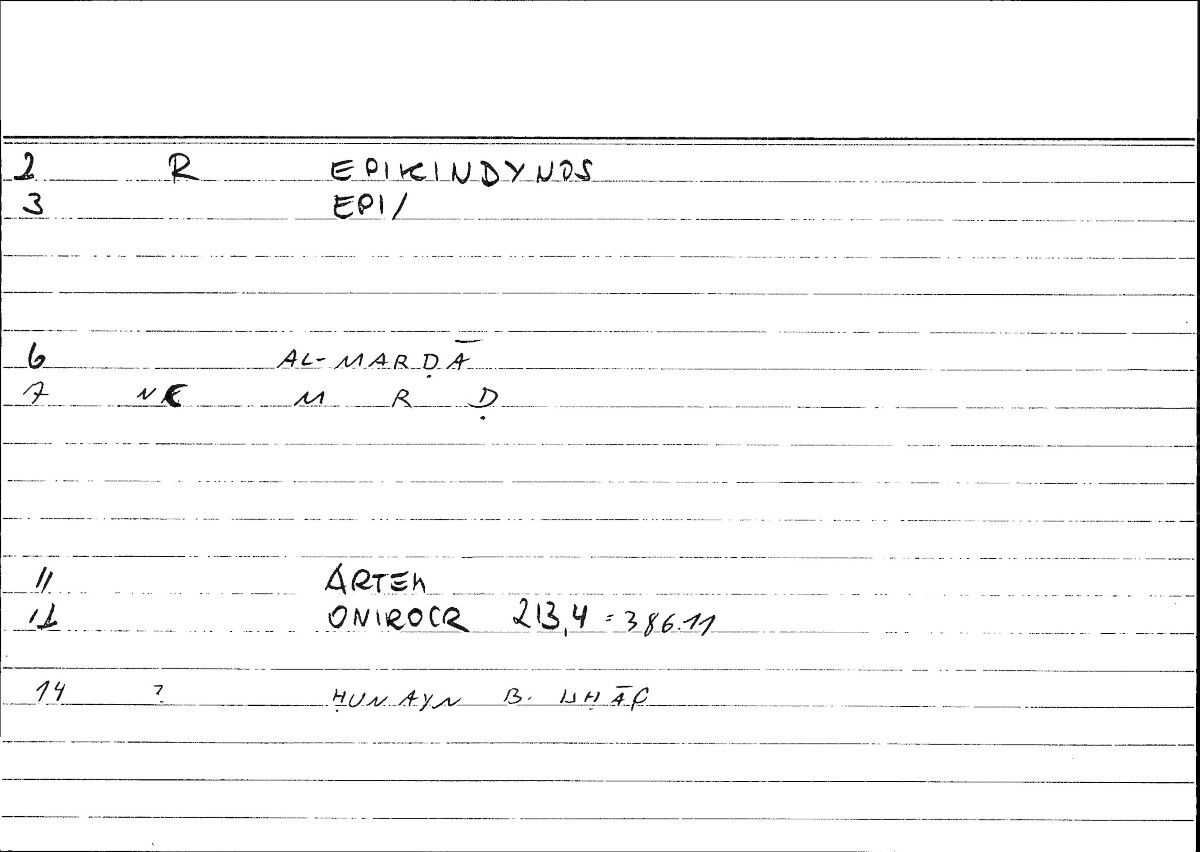 2 R EPIKINDYNOS
3 EPI/
6 AL-MARḌĀ
7 NE M R Ḍ
11 ARTEM
12 ONIROCR 213,4 = 386.11
14 ? ḤUNAYN B. ISḤĀQ